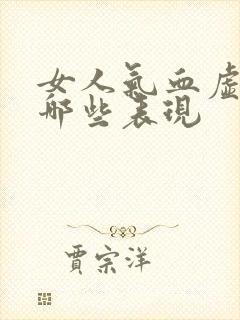 女人氣血虛
哪些表現
賈宗洋